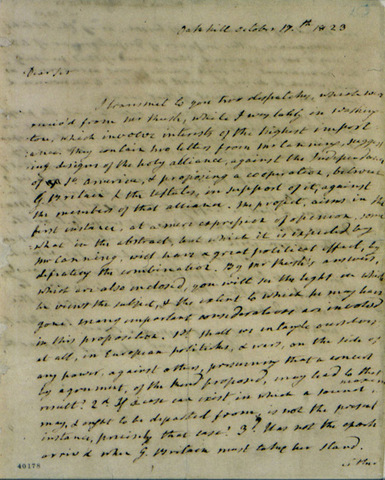 Oakhill October 17.th 1823
Dear Sir
I transmit to you two despatches, which were
receiv'd from Mr Rush, while I was lately in Washing
ton, which involve interests of the highest import
ance. They contain two letters from Mr Canning, suggest
ing designs of the holy alliance, against the Independence
of So America, & proposing a co-operation, between
G. Britain & the UStates, in support of it, against
the members of that alliance. The project, aims, in the
first instance, at a mere expression of opinion, some
what in the abstract, but which it is expected by
Mr Canning, will have a great political effect, by
defeating the combination. By Mr Rush's answers,
which are also enclosed, you will see the light in which
he views the subject, & the extent to which he may have
gone. Many important considerations are involved
in this proposition. 1st Shall we entangle ourselves
at all, in European politicks, & wars, on the side of
any power, against others, presuming that a concert
by agreement, of the kind proposed, may lead to that
result? 2d If a case can exist, in which a sound maxim
may, & ought to be departed from, is not the present
instance, precisely that case? 3d Has not the epoch
arriv'd when G. Britain must take her stand,
40178